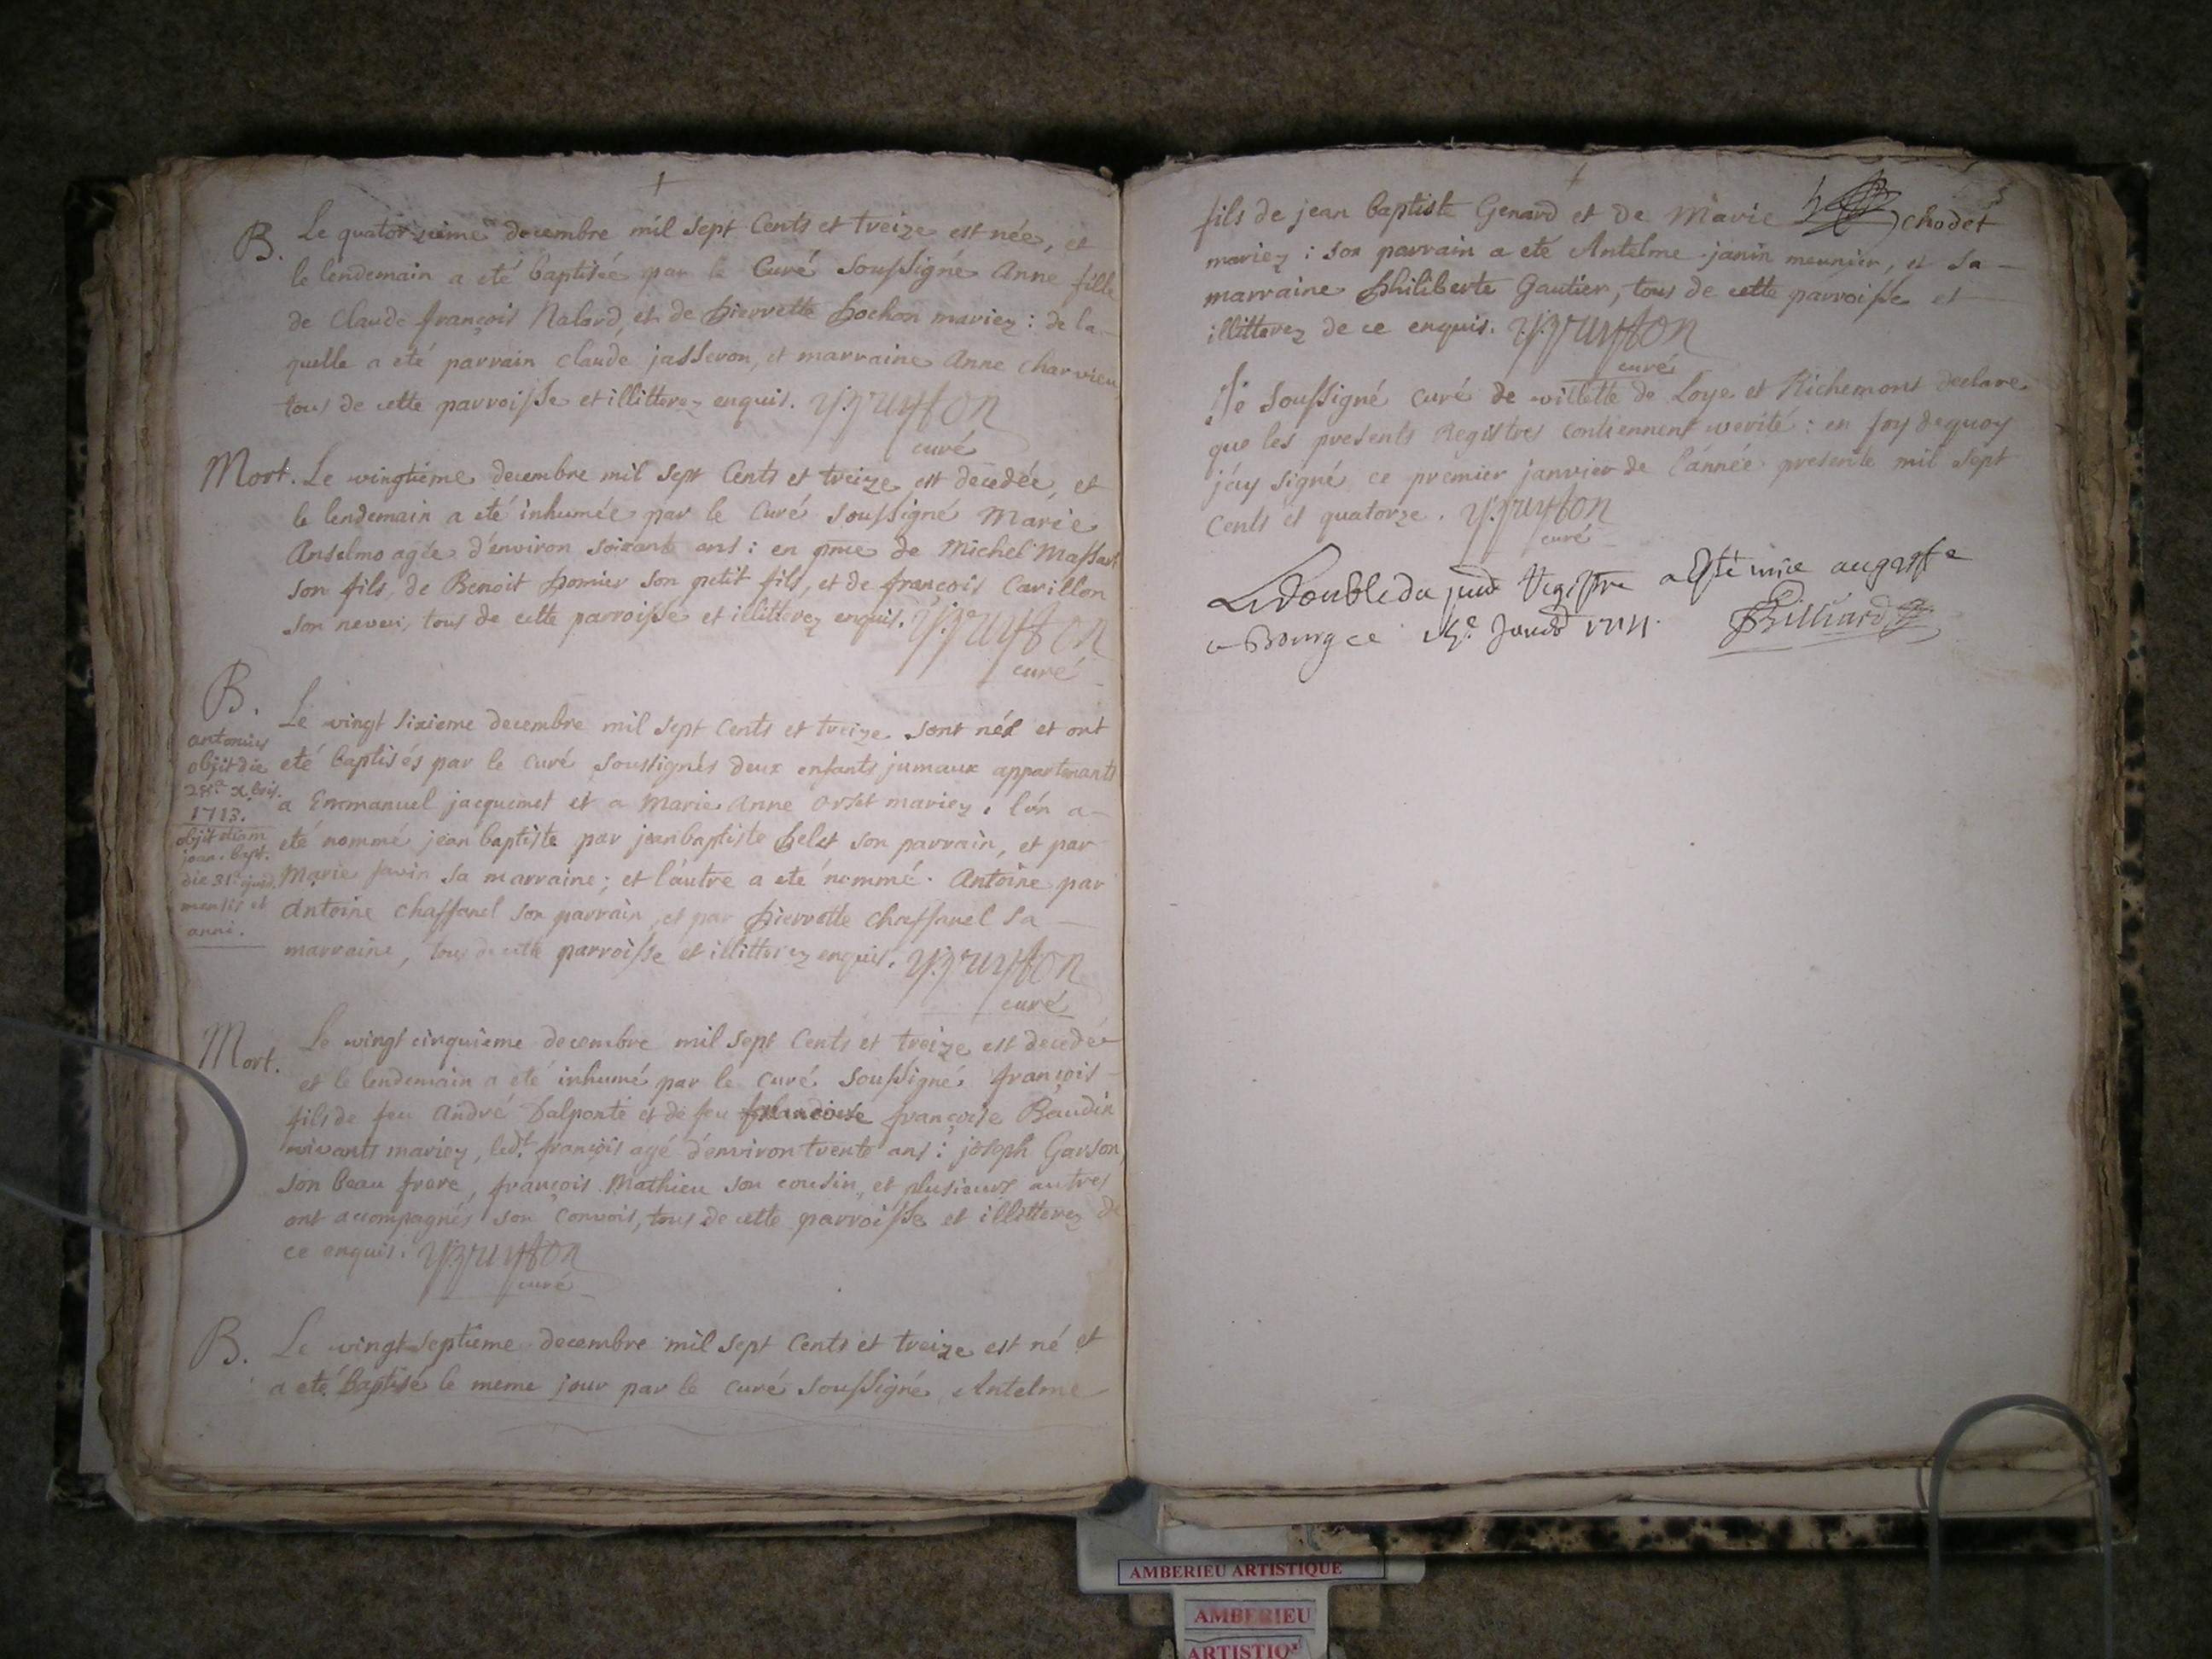 B. Le quatorzieme decembre mil sept Cents et treize est née, et
le lendemain a eté baptisée par le Curé Soussigné Anne fille
de Claude françois Nalard, et de Pierrette Pochon mariez : de la-
quelle a eté parrain Claude jasseron, et marraine Anne Charvieu
tous de cette parroisse et illitterez enquis.
curé
Mort. Le vingtieme decembre mil sept Cents et treize est decedée, et
le lendemain a eté inhumée par le Curé Soussigné Marie
Anselmo agée d'environ soixante ans : en pnce de Michel Massart
son fils, de Benoit Pomier son petit fils, et de françois Carillon
son neveu, tous de cette parroisse et illitterez enquis.
curé
B. Le vingt Sixieme decembre mil sept Cents et treize sont nés et ont
eté baptisés par le curé soussignés deux enfants jumaux appartenants
a Emmanuel jacquemet et a Marie Anne Orset mariez. l'un a-
eté nommé jean baptiste par jean baptiste Pelet son parrain, et par
Marie favin sa marraine ; et l'autre a eté nommé Antoine par
Antoine Chaffanel son parrain, et par Pierrette Chaffanel sa
marraine, tous de cette parroisse et illitterez enquis.
curé
antonius
objit die
28a xbris.
1713.
objit etiam
joan. bapt.
die 31a ejusd.
mensis et
anni.
Mort. Le vingt cinquieme decembre mil sept Cents et treize est decedé
et le lendemain a eté inhumé par le Curé Soussigné françois
fils de feu André Dalponte et de feu françoise Beaudin
vivants mariez, led.t françois agé d'environ trente ans : joseph Garson,
son beau frere, françois Mathieu son cousin, et plusieurs autres
ont accompagnés son Convois, tous de cette parroisse et illitterez de
ce enquis.
curé
B. Le vingt septieme decembre mil sept Cents et treize est né et
a eté baptisé le meme jour par le curé soussigné Antelme
fils de jean baptiste Genard et de Marie Chodet
mariez : son parrain a eté Antelme janin meunier, et sa
marraine Philiberte Gautier, tous de cette parroisse et
illitterez de ce enquis.
curé
Je soussigné curé de villette de Loye et Richemont declare
que les presents Registres contiennent verité : en foy dequoy
j'ay signé ce premier janvier de l'année presente mil sept
Cents et quatorze.
curé
Le double du Registre a esté mie au greffe
a Bourg ce
AMBERIEU ARTISTIQUE
AMBERIEU